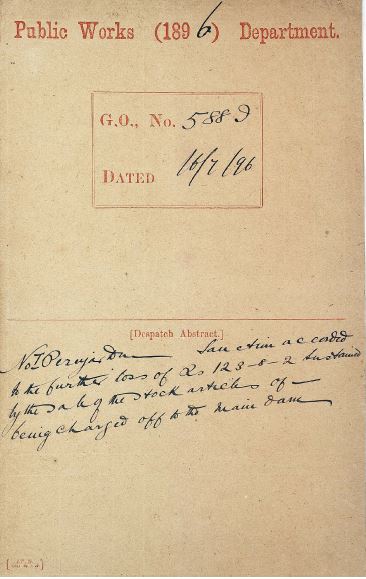 Public Works (1896) Department.
G.O., No. 588 D
DATED 16/7/96
[Despatch Abstract.]
No I Periyar Dn — Sanction accorded
to the further loss of Rs 123-8-2 sustained
by the sale of the stock articles of —
being charged off to the main dam